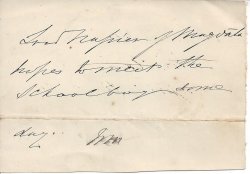 Lord Napier of Magdala
hopes to meet the
Schoolboy some
day.